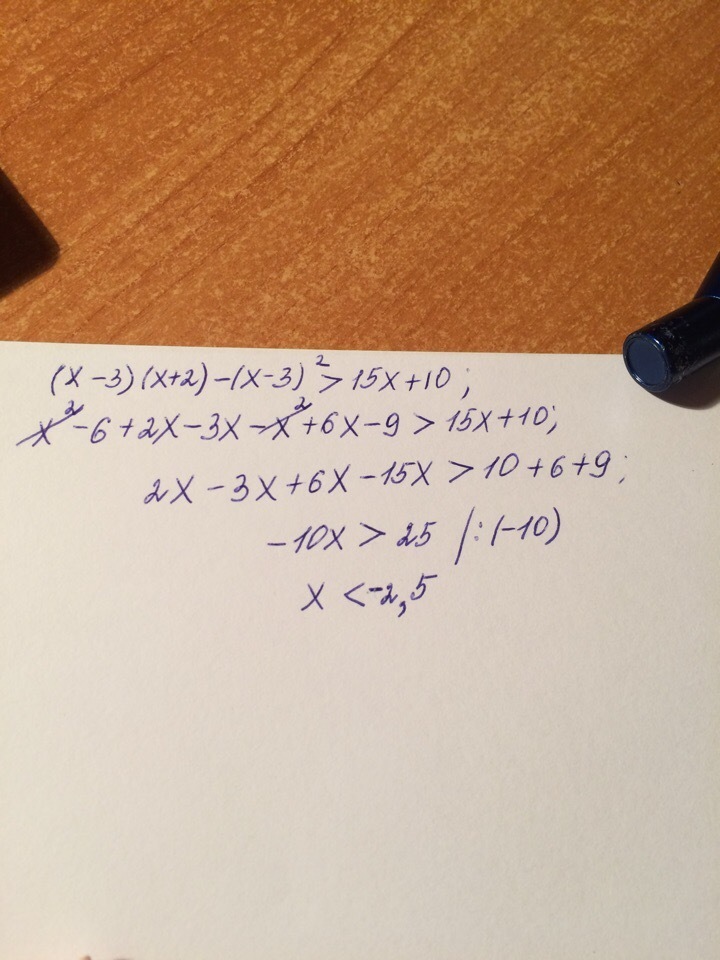 (x-3)(x+2)-(x-3)²>15x+10;
x²-6+2x-3x-x²+6x-9>15x+10;
2x-3x+6x-15x>10+6+9;
-10x>25 |:(-10)
x<-2,5